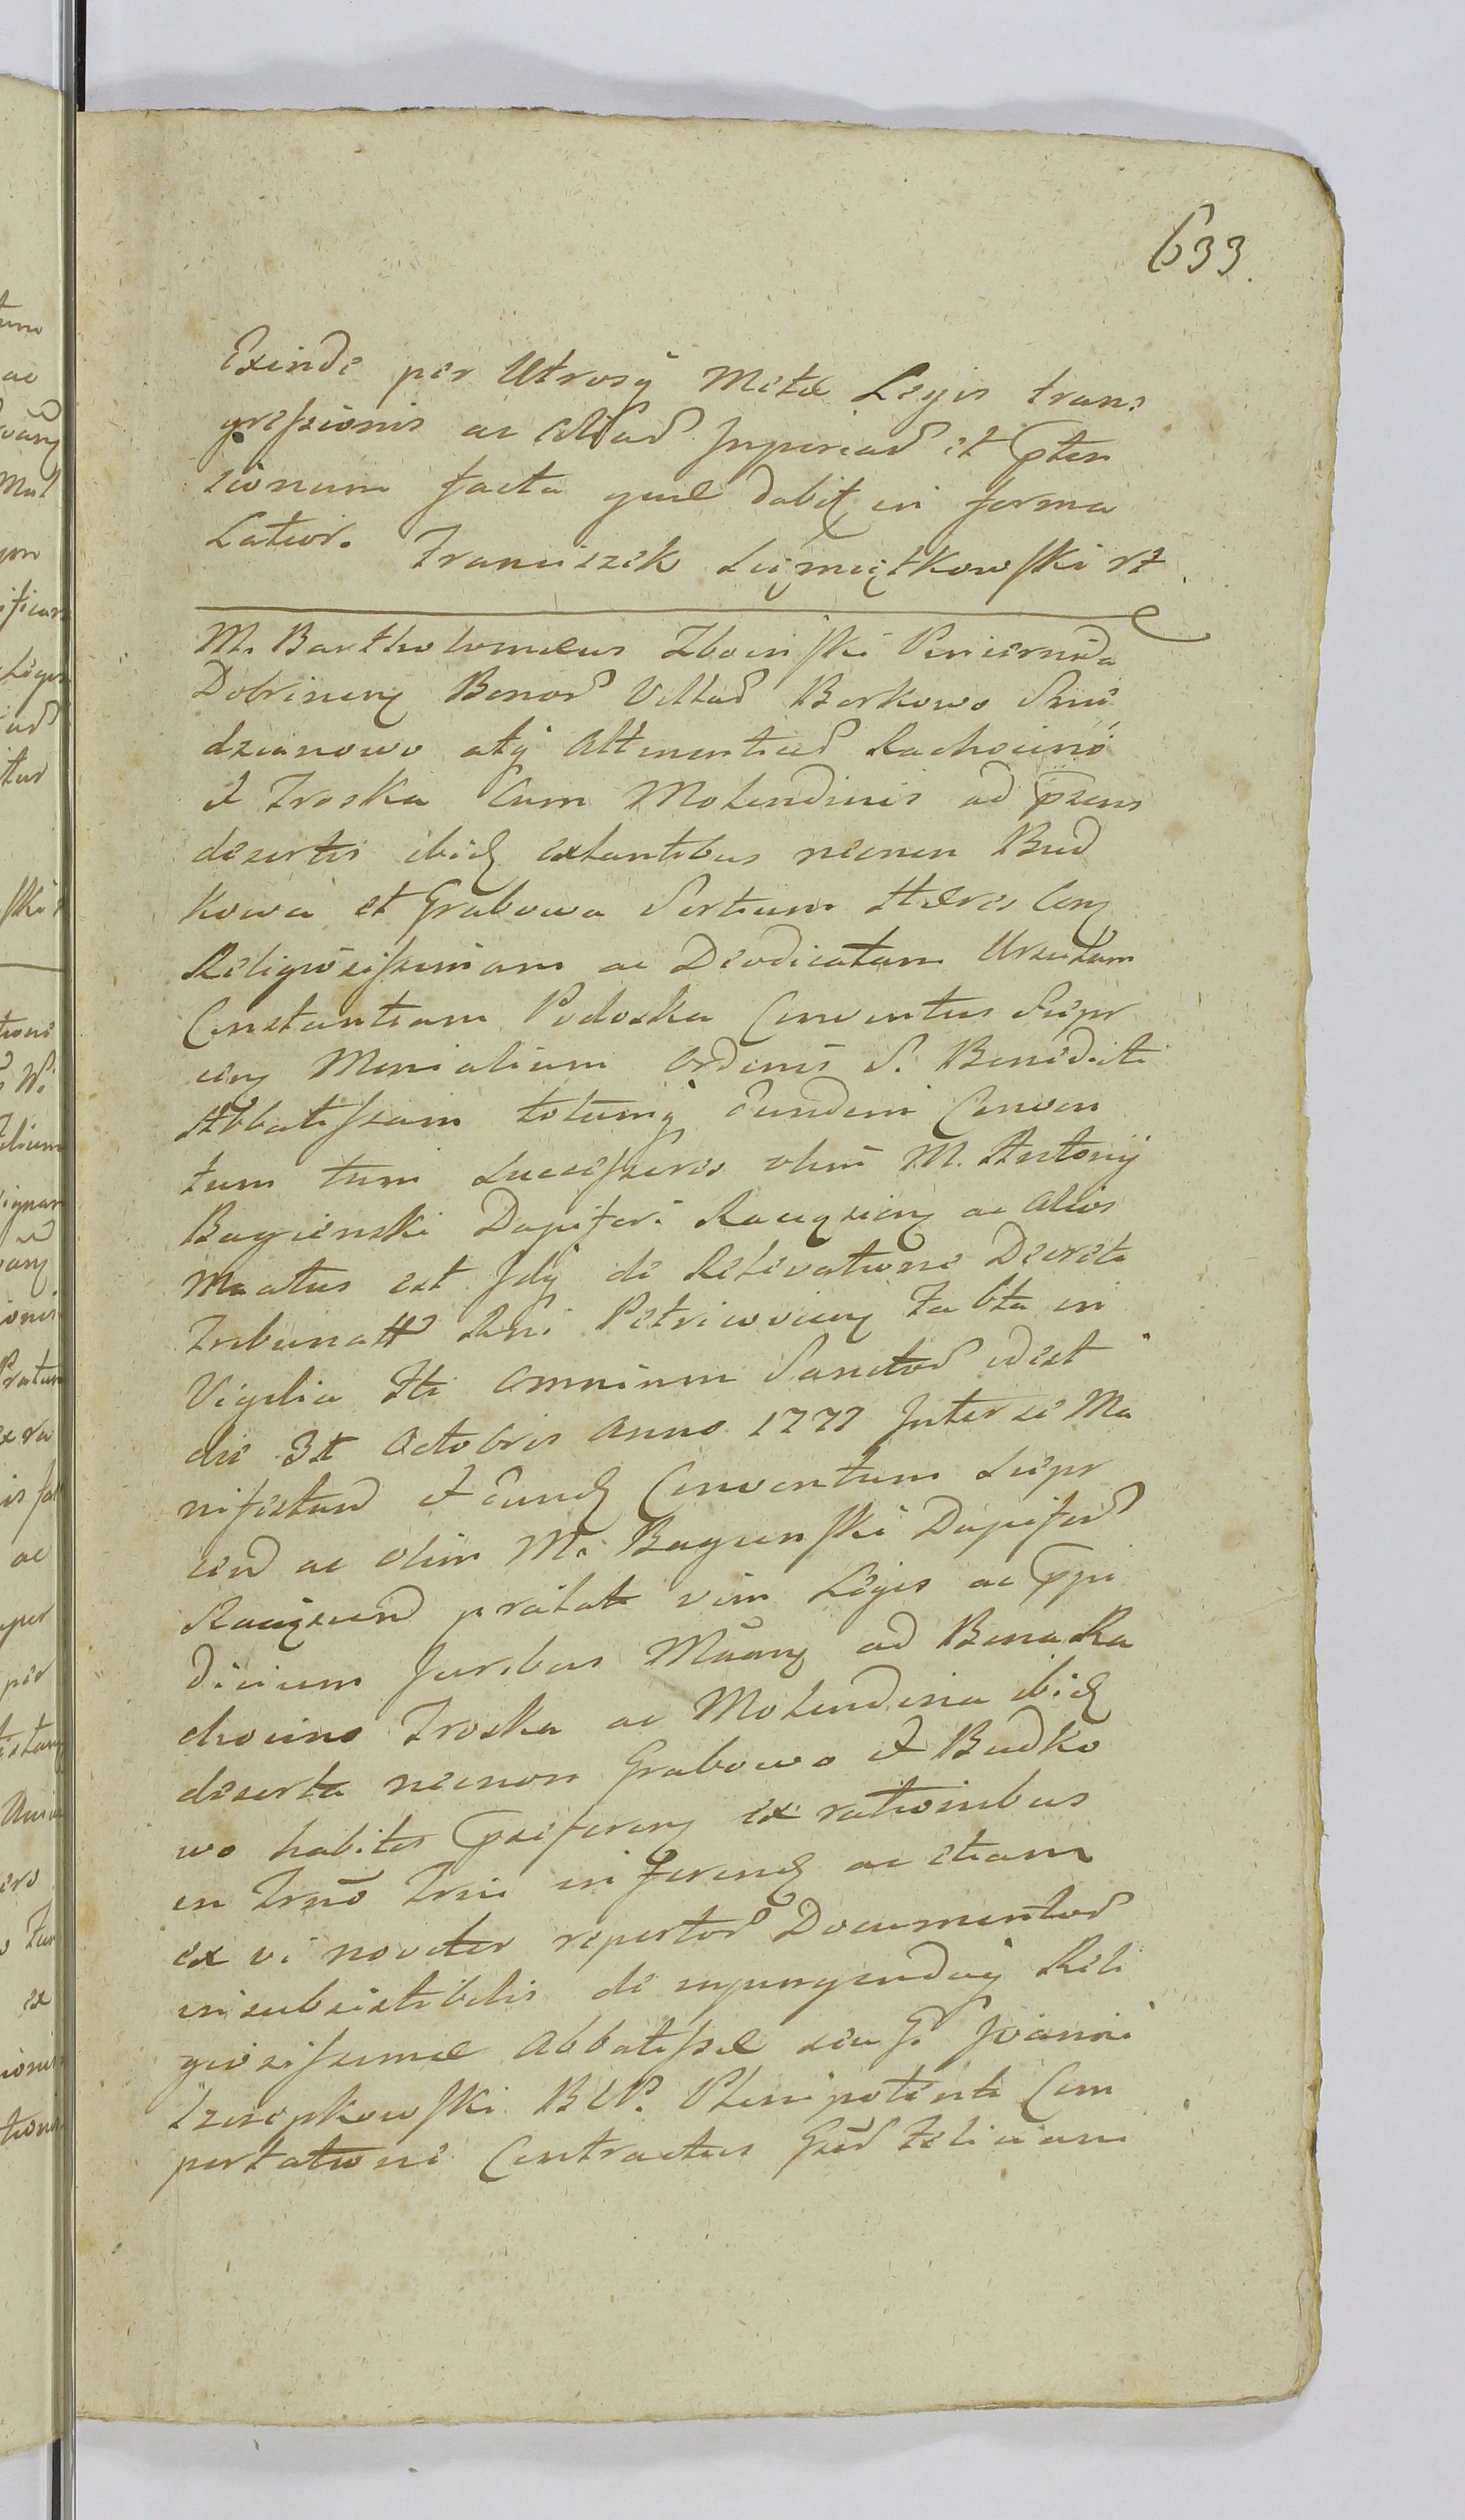 633.
Exinde per Utrosq Metæ Legis trans
gressionis ac Aliad Injuriad et pten
sionum facta quæ dabit in forma
Latior. Franciszek Lu
M. Bartholomæus Zboinski Pincernida
Dobrinen Bonor Villar Borkowo
dzianowo atq Attinentiad Rachocino
et Troska Cum Molendinis ad præns
desertis ibid extantibus necnon Bud
kowa et Grabowa Sortium Hæres Con
Religiosissimam ac Deodicatam Ursulam
Constantiam Podoska Conventus Sierpr
cen Monialium Ordinis S. Benedicti
Abbatissam totumq Eundem Conven
tum tum Successores olim M. Antonij
Bagienski Dapiferi Raciązien ac Alios
Mnatus est Idq de Relevatione Decreti
Tribunatt Rni Petricovien Fabta in
Vigilia Fti Omnium Sanctor idest
die 31 Octobris Anno 1777 Inter se Ma
nifestan et Eund Conventum Sierpr
cen ac olim M. Bagienski Dapifer
Raciązien prolat vim Legis ac ppi
dicium Juribus Mnan ad Bona Ra
chocino Troska ac Molendina ibid
deserta necnon Grabowo et Budko
wo habitis præferen ex rationibus
in Trno Trii inferend ac etiam
ex vi noviter repertor Documentor
insubsistibilis de expurgendaq Reli
giosissimæ Abbatissæ seu G. Joanni
Czerepkowski B C P. Plenipotenti Com
portatione Contractus Gsd Felician